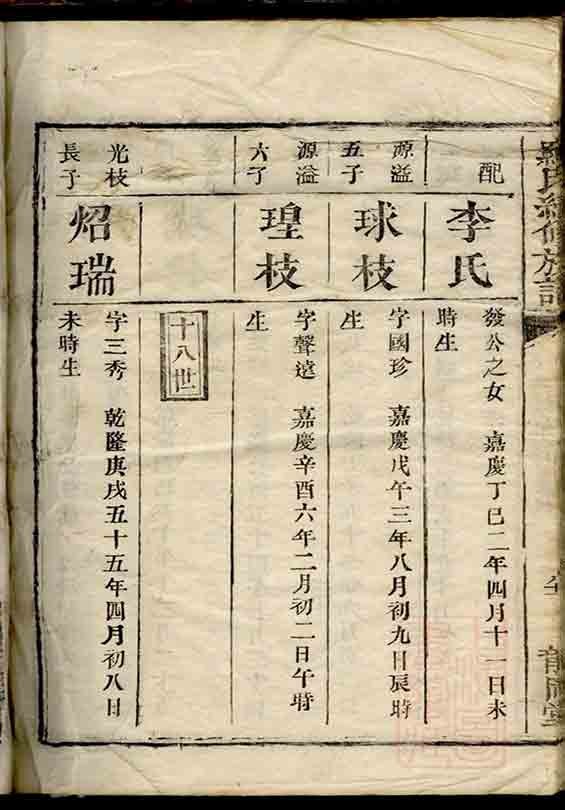 配
李氏
發公之女 嘉慶丁巳二年四月十一日未
時生
源溢
五子
球枝
字國珍 嘉慶戊午三年八月初九日辰時
生
源溢
六子
瑝枝
字聲遠 嘉慶辛酉六年二月初二日午時
生
十八世
光枝
長子
炤瑞
字三秀 乾隆庚戌五十五年四月初八日
未時生